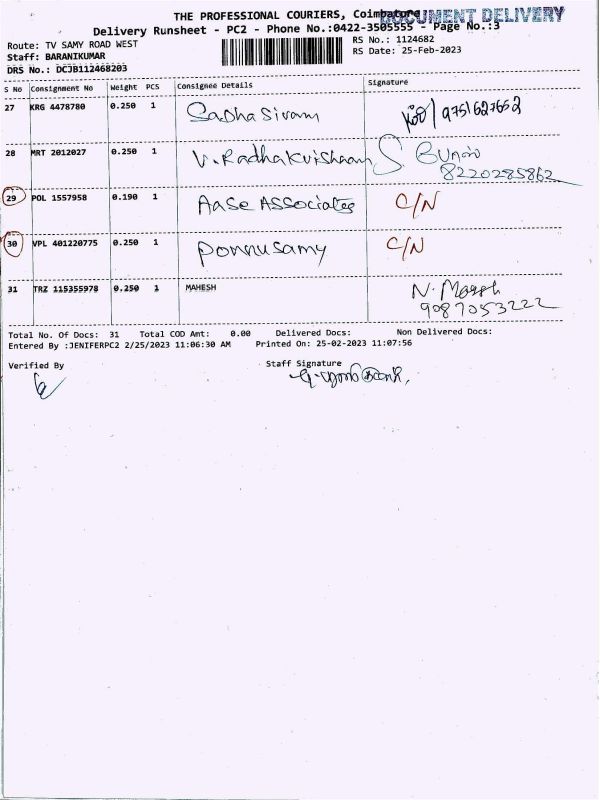 THE PROFESSIONAL COURIERS, Coimbatore
DOCUMENT DELIVERY
Delivery Runsheet - PC2 - Phone No.:0422-3505555 - Page No.:3
Route: TV SAMY ROAD WEST
RS No.: 1124682
Staff: BARANIKUMAR
RS Date: 25-Feb-2023
DRS No.: DCJB112468203
S No Consignment No Weight PCS Consignee Details Signature
27 KRG 4478780 0.250 1 Sadhasivam 9751627652
28 MRT 2012027 0.250 1 V. Radhakrishnan S.
8220285862
29 POL 1557958 0.190 1 Aase Associates C/N
30 VPL 401220775 0.250 1 Ponnusamy C/N
31 TRZ 115355978 0.250 1 MAHESH N.
9087053222
Total No. Of Docs: 31 Total COD Amt: 0.00 Delivered Docs: Non Delivered Docs:
Entered By :JENIFERPC2 2/25/2023 11:06:30 AM Printed On: 25-02-2023 11:07:56
Verified By Staff Signature